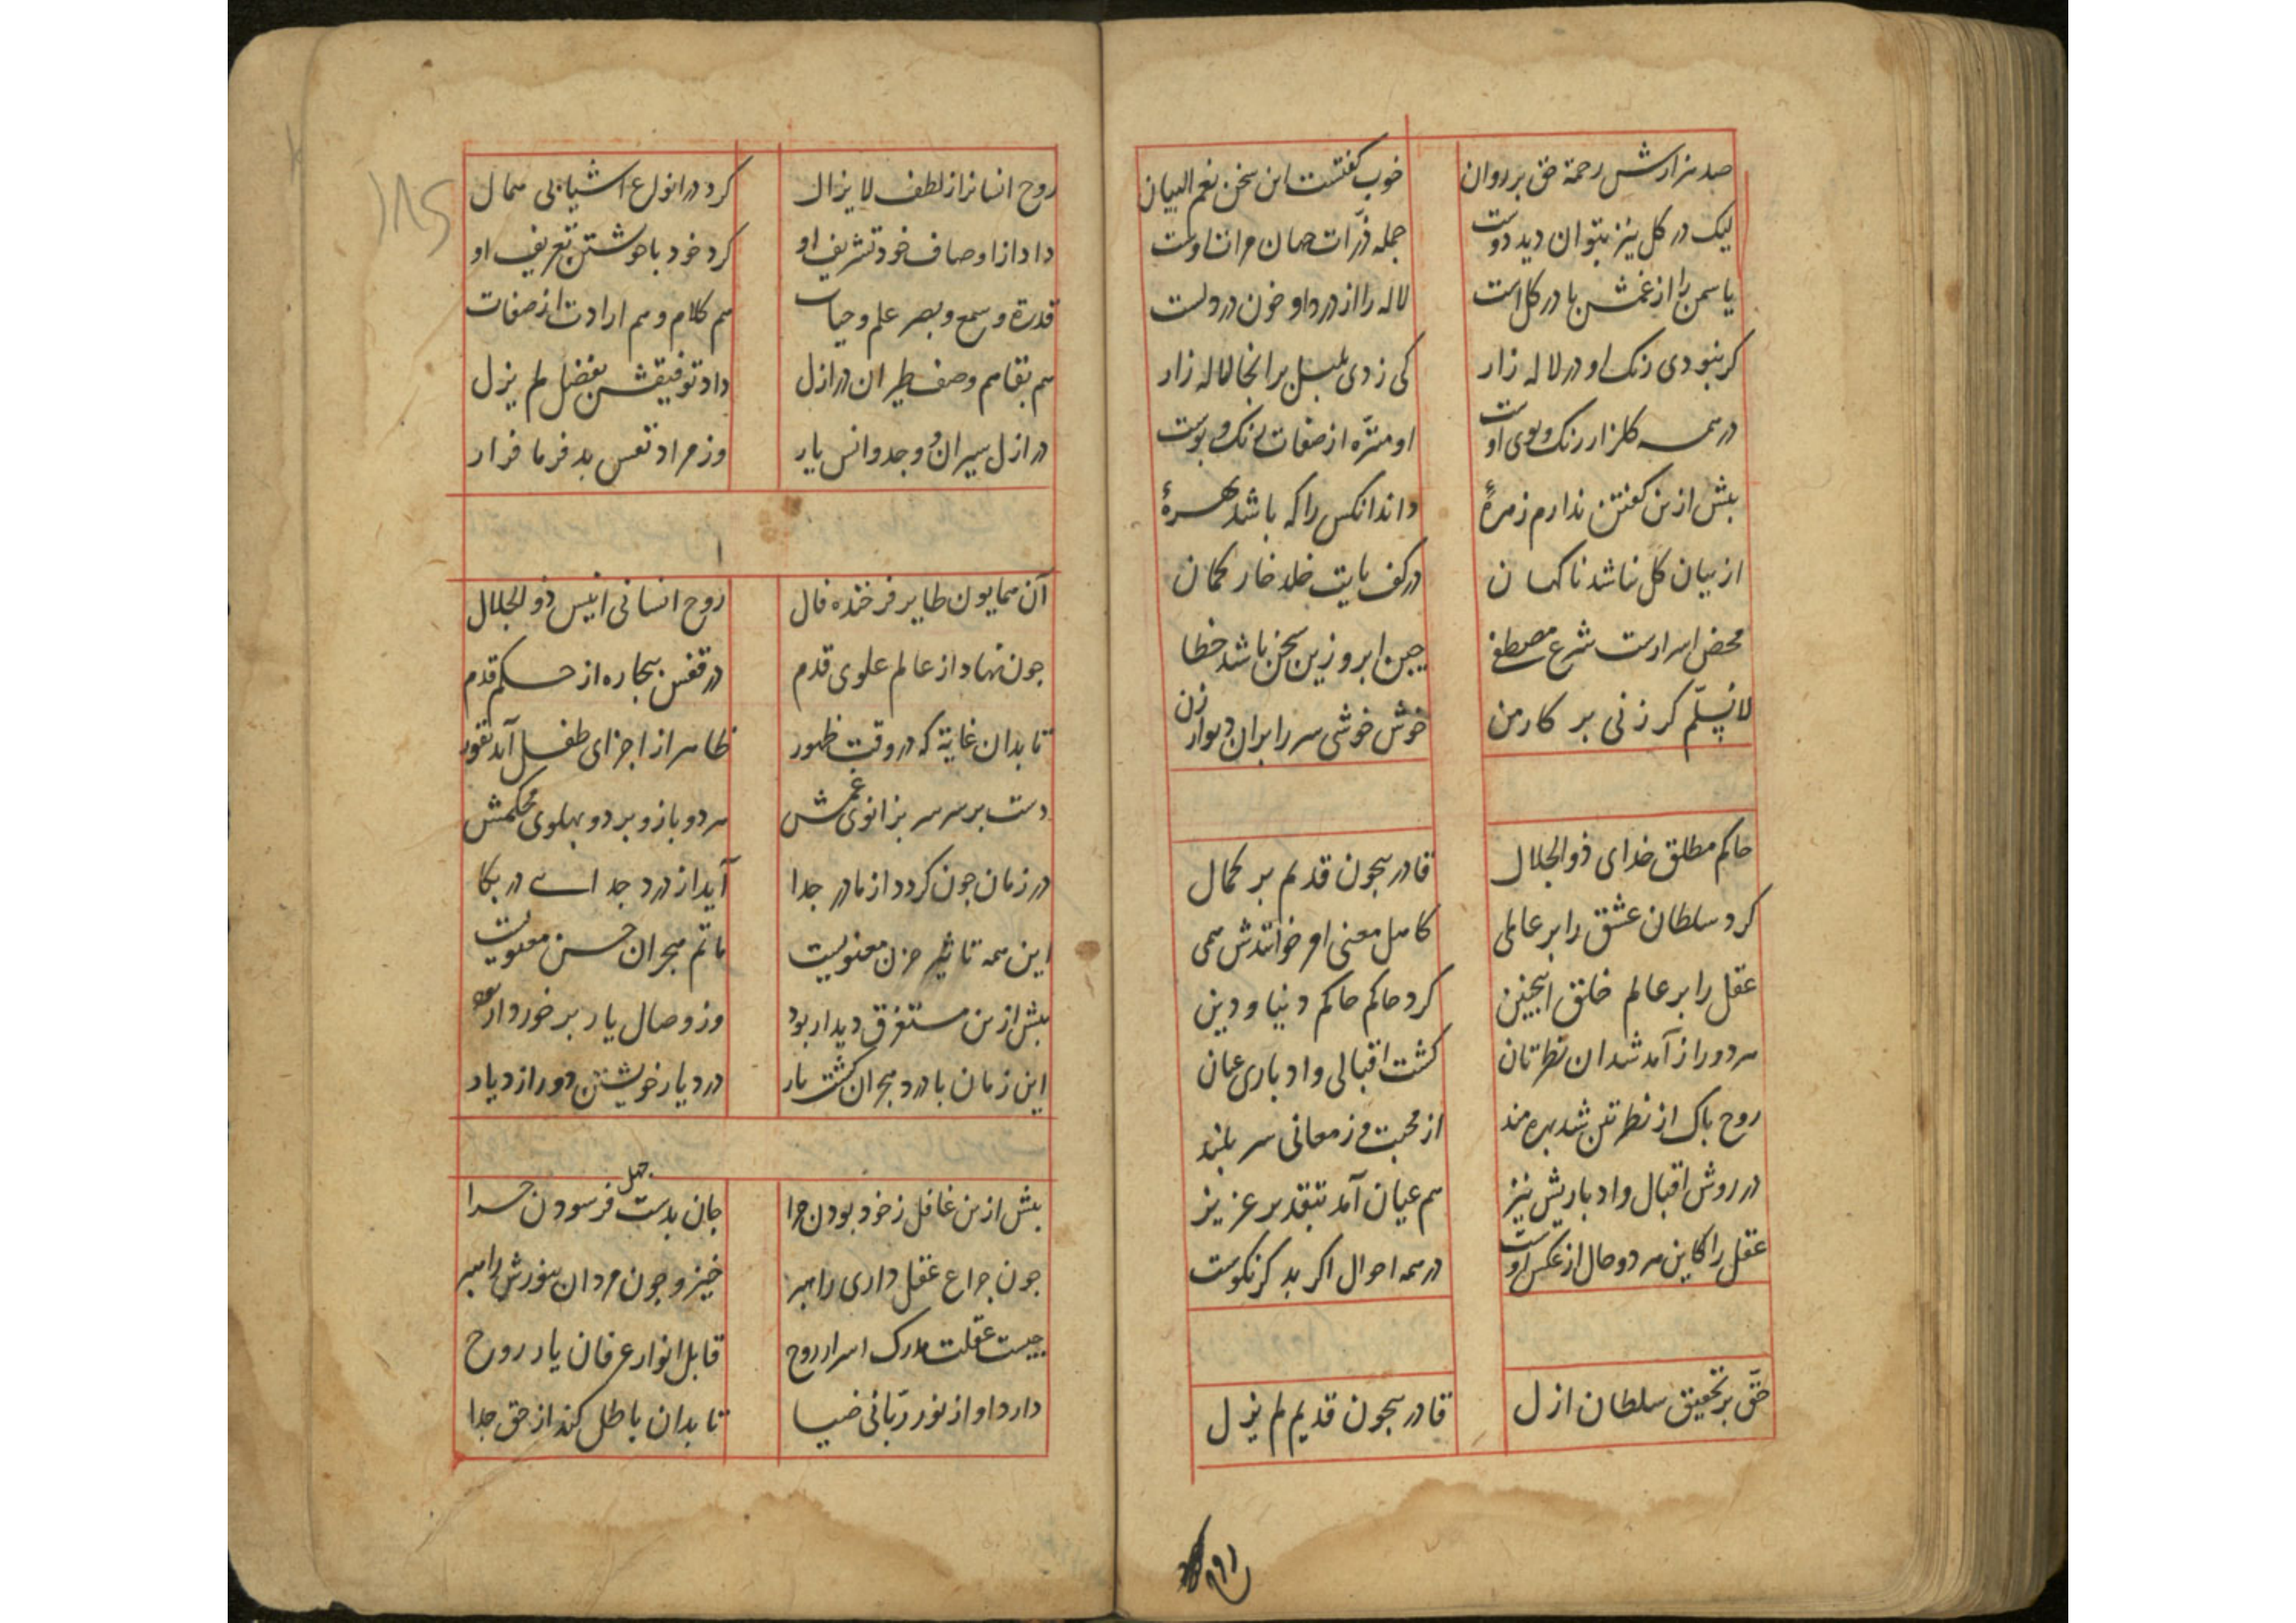 صد هزارش رحمة حق بر روان خوب گفتست این سخن نعم البیان
لیک در کل نیز بتوان دید دوست جمله ذرّات جهان مرات اوست
یاسمن را از غمش پا در کل است لاله را از درد او خون در دلست
کر نبودی رنک او در لاله زار کی زدی بلبل بر انجا ناله زار
در همه کلزار رنک و بوی اوست او منزّه از صفات رنک و بوست
بیش ازین کفتن ندارم زهرهٔ داند انکس را که باشد بهرهٔ
از بیان کل نباشد ناکهان در کف پایت خلد خار کمان
محض اسرارست شرع مصطفی چین ابرو زین سخن باشد خطا
لانسلّم کر زنی بر کار من خوش خوشی سر را بران دیوار زن
حاکم مطلق خدای ذوالجلال قادر بیچون قدیم بر کمال
کرد سلطان عشق را بر عاملی کامل معنی امر خوانندش همی
عقل را بر عالم خلق اینچنین کرد حاکم حاکم دنیا و دین
هر دو را از آمد شدان نظرتان کشت اقبالی و ادباری عیان
روح پاک از نظرتن شد بهره مند از محبت وز معانی سر بلند
در روش اقبال و ادباریش نیز هم عیان آمد بتقدیر عزیز
عقل را کاین هر دو حال از عکس اوست در همه احوال اکر بد کر نکوست
حق بر تحقیق سلطان ازل قادر بیچون قدیم لم یزل
روح انسانرا ز لطف لایزال کرد در انواع اشیا بی همال
داد از اوصاف خود تشریف او کرد خود با خویشتن تعریف او
قدرة و سمع و بصر علم و حیات هم کلام و هم ارادت از صفات
هم بقا هم وصف طیران در ازل داد توفیقش بفضل لم یزل
در ازل سیران و وجد و انس یار وز مراد نفس بد فرما فرار
آن همایون طایر فرخنده فال روح انسانی انیس ذوالجلال
چون نهاد از عالم علوی قدم در قفس بیچاره از حکم قدم
تا بدان غایة که در وقت ظهور ظاهر از اجزای طفل آید نفور
دست بر سر سر بزانوی غمش هر دو بازو بر دو پهلوی محکمش
در زمان چون کردد از مادر جدا آید از درد جدایی در بکا
این همه تاثیر حزن معنویست ماتم هجران حسن معنویست
بیش ازین مستغرق دیدار بود وز وصال یار برخوردار بود
این زمان با درد هجران کشت یار در دیار خویشتن دور از دیار
بیش ازین غافل ز خود بودن چرا جان بدست جهل فرسودن چرا
چون چراغ عقل داری راهبر خیز و چون مردان بنورش راه بر
چیست عقلت مدرک اسرار روح قابل انوار عرفان یار روح
دارد او از نور ربّانی ضیا تا بدان باطل کند از حق جدا